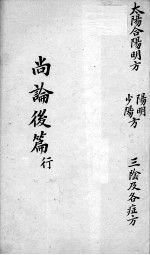 太陽合陽明方
陽明
少陽方
三陰及各症方
尚論後篇
行